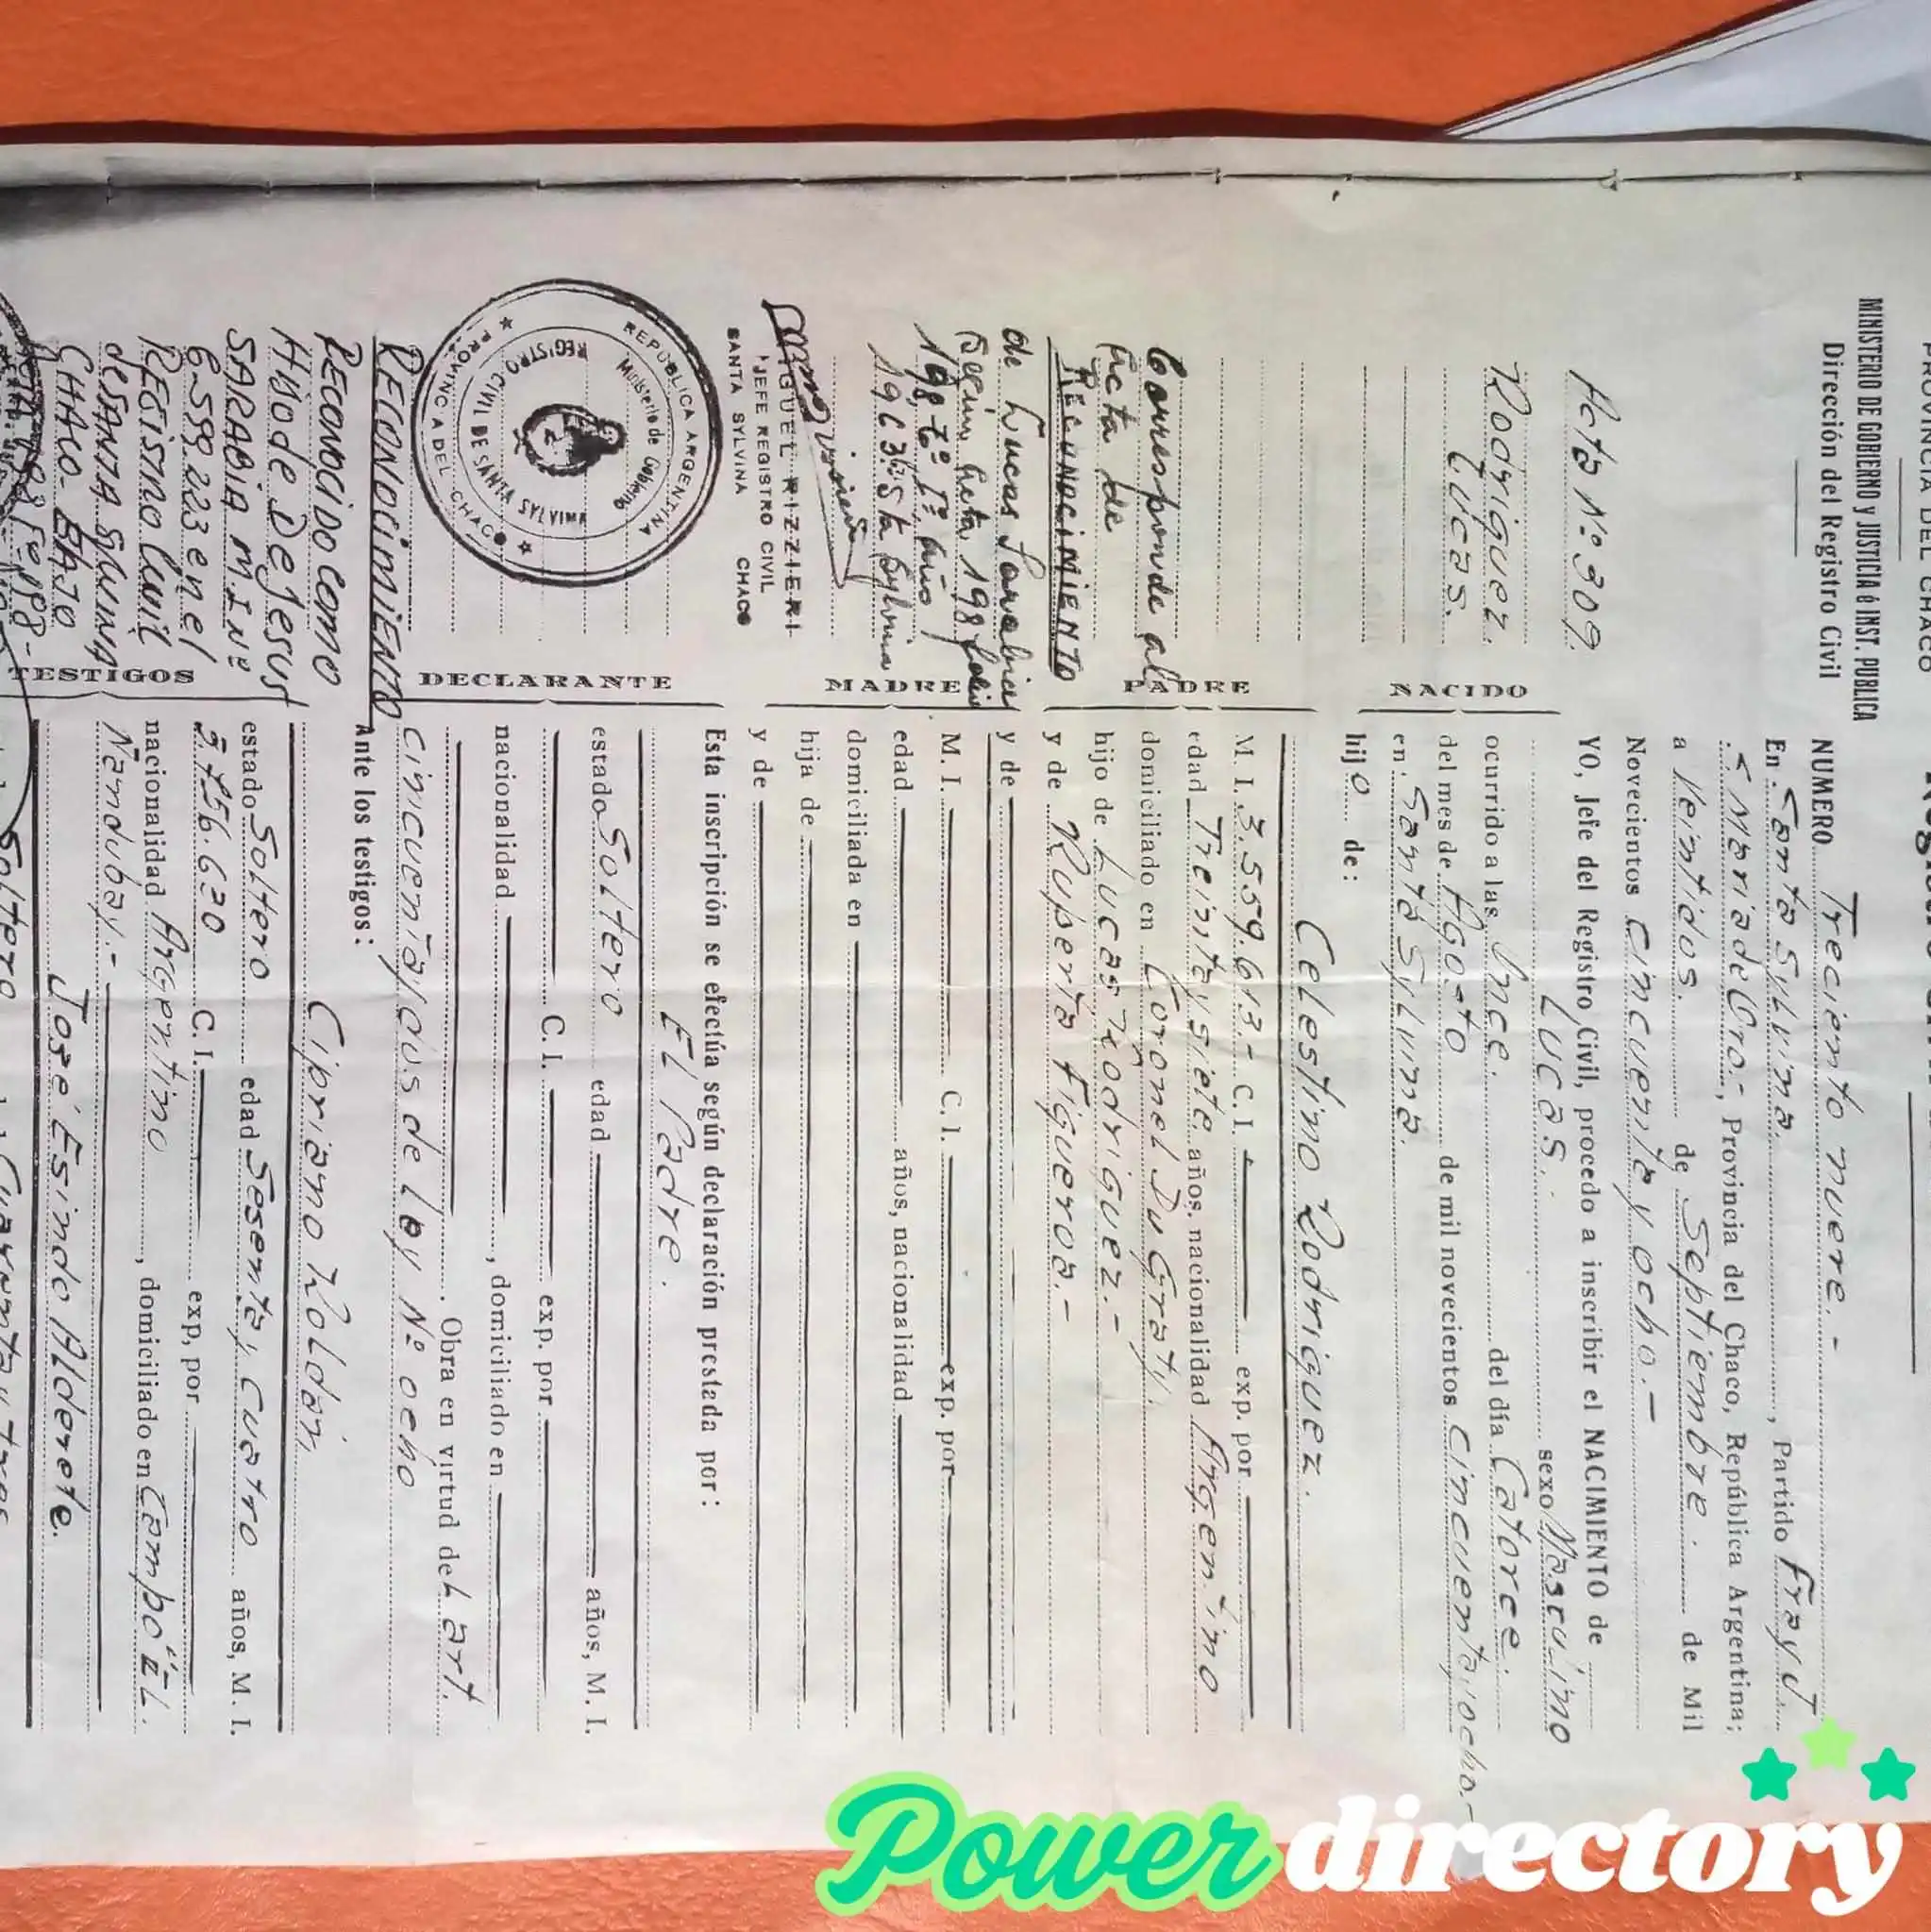 PROVINCIA DEL CHACO
MINISTERIO DE GOBIERNO y JUSTICIA é INST. PUBLICA
Dirección del Registro Civil
Acta Nº 309
Rodriguez.
Lucas.
Corresponde al
Acta de
RECONOCIMIENTO
de Lucas Sarabia
Según Acta 198 folio
198, tº Iº, año
1963.- Sta Sylvina
MIGUEL RIZZIERI
JEFE REGISTRO CIVIL
SANTA SYLVINA CHACO
REPUBLICA ARGENTINA
Ministerio de Gobierno
REGISTRO CIVIL DE SANTA SYLVINA
PROVINCIA DEL CHACO
RECONOCIMIENTO
RECONOCIDO COMO
HIJO de De Jesus
SARABIA M.I Nº
6.599.223 en el
REGISTRO Civil
de SANTA SYLVINA
CHACO- BAJO
NACIDO
PADRE
MADRE
DECLARANTE
TESTIGOS
NUMERO Treciento nueve.-
En Santa Sylvina. , Partido Fray J.
S. Maria de Oro.-, Provincia del Chaco, República Argentina;
a Veintidos. de Septiembre. de Mil
Novecientos cincuenta y ocho.-
YO, Jefe del Registro Civil, procedo a inscribir el NACIMIENTO de
Lucas. sexo Masculino
ocurrido a las Once. del día Catorce.
del mes de Agosto de mil novecientos Cincuenta, ocho.-
en Santa Sylvina.
hijo de:
Celestino Rodriguez.
M. I. 3.559.613.- C. I. exp. por
edad Treinta y siete años, nacionalidad Argentino
domiciliado en Coronel Du Graty.
hijo de Lucas Rodriguez.-
y de Ruperta Figueroa.-
y de
M. I. C. I. exp. por
edad años, nacionalidad
domiciliada en
hija de
y de
Esta inscripción se efectúa según declaración prestada por:
El Padre.
estado Soltero edad años, M. I.
C. I. exp. por
nacionalidad , domiciliado en
. Obra en virtud del art.
cincuenta y dos de Ley Nº ocho
Ante los testigos:
Cipriano Roldán,
estado Soltero edad Sesenta, cuatro años, M. I.
2.756.620 C. I. exp, por
nacionalidad Argentino , domiciliado en Campo "EL
Ñandubay.-
José Esindo Alderete.
Soltero Cuarenta y tres
Power directory